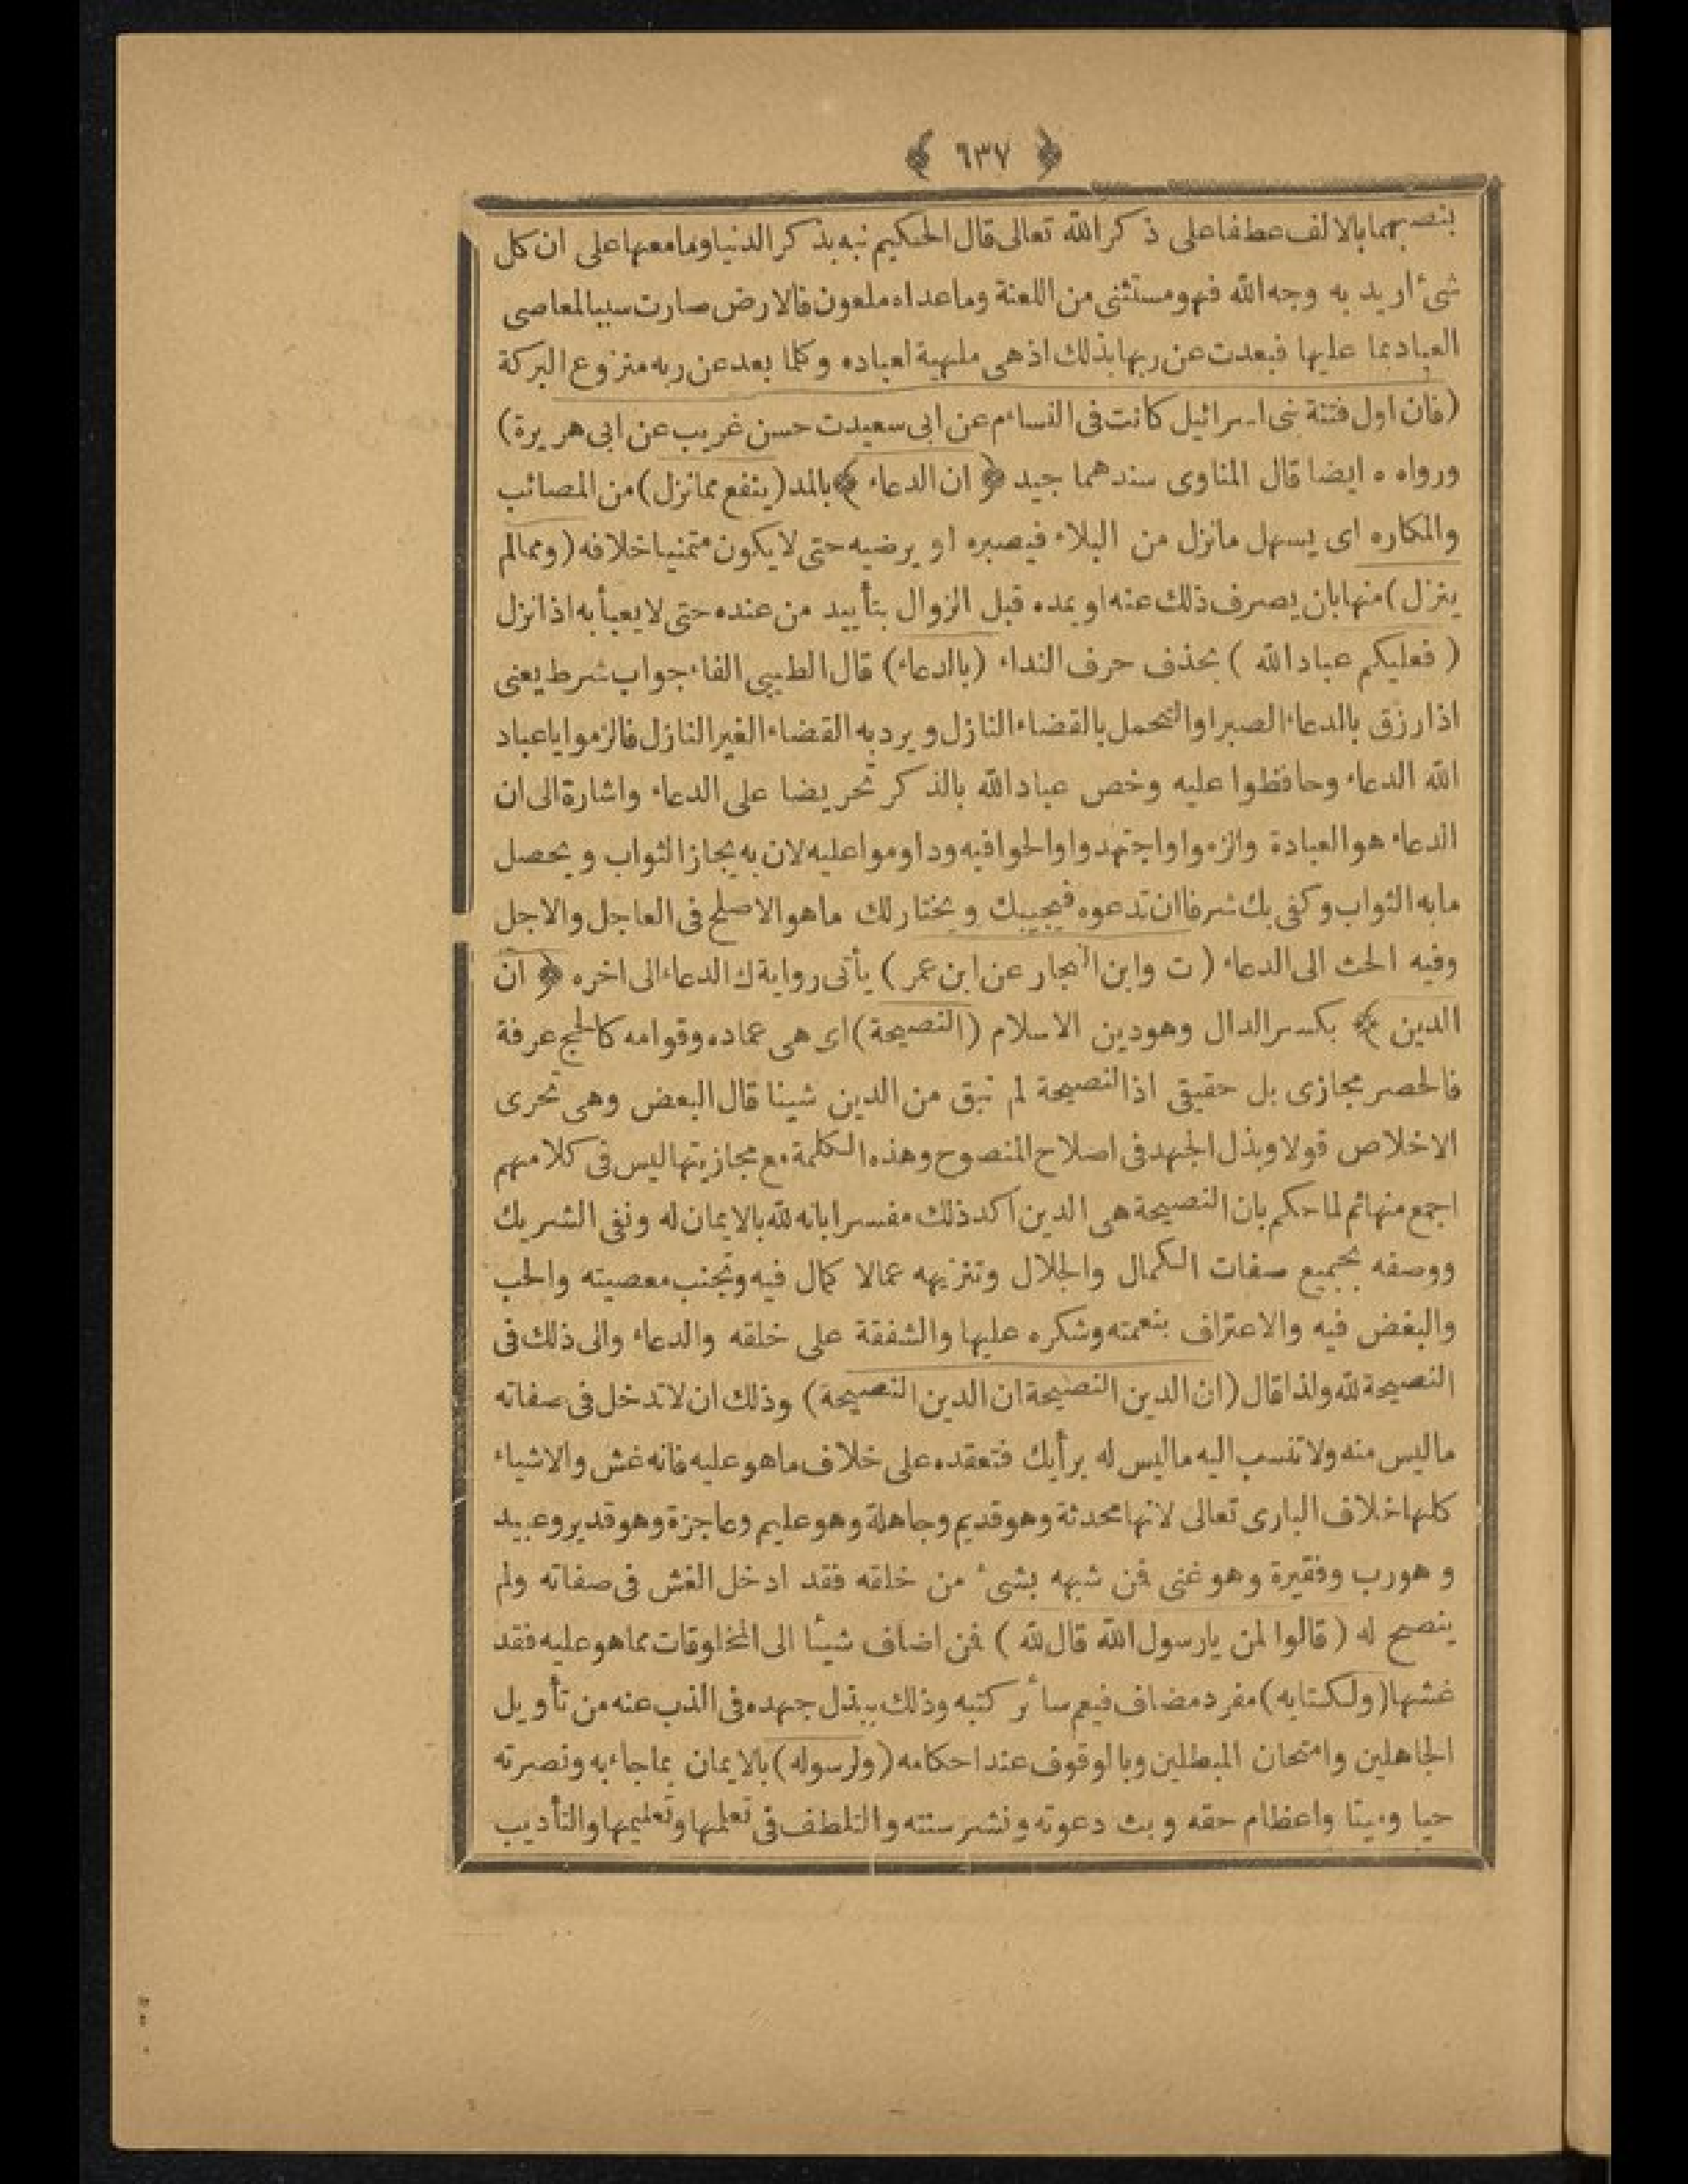 ﴿ ٦٣٧ ﴾
بنصبهما بالالف عطفا على ذكر الله تعالى قال الحكيم نبه بذكر الدنيا وما معها على ان كل
شئ اريد به وجه الله فهو مستثنى من اللعنة وما عداه ملعون فالارض صارت سببا لمعاصى
العباد بما عليها فبعدت عن ربها بذلك اذ هى ملهية لعباده وكلما بعد عن ربه منزوع البركة
(فان اول فتنة بنى اسرائيل كانت فى النساء م عن ابى سعيد ت حسن غريب عن ابى هريرة)
ورواه ه ايضا قال المناوى سندهما جيد ﴿ ان الدعاء ﴾ بالمد (ينفع مما نزل) من المصائب
والمكاره اى يسهل ما نزل من البلاء فيصبره او يرضيه حتى لا يكون متمنيا خلافه (ومما لم
ينزل) منها بان يصرف ذلك عنه او يمده قبل الزوال بتأييد من عنده حتى لا يعبأ به اذا نزل
(فعليكم عباد الله) بحذف حرف النداء (بالدعاء) قال الطيبى الفاء جواب شرط يعنى
اذا رزق بالدعاء الصبر او التحمل بالقضاء النازل ويرد به القضاء الغير النازل فالزموا يا عباد
الله الدعاء وحافظوا عليه وخص عباد الله بالذكر تحريضا على الدعاء واشارة الى ان
الدعاء هو العبادة والزموا واجتهدوا والحوا فيه وداوموا عليه لان به يحاز الثواب ويحصل
ما به الثواب وكفى بك شرفا ان تدعوه فيجيبك ويختار لك ما هو الاصلح فى العاجل والاجل
وفيه الحث الى الدعاء (ت وابن النجار عن ابن عمر) يأتى رواية ك الدعاء الى اخره ﴿ ان
الدين ﴾ بكسر الدال وهو دين الاسلام (النصيحة) اى هى عماده وقوامه كالحج عرفة
فالحصر مجازى بل حقيقى اذ النصيحة لم تبق من الدين شيئا قال البعض وهى تحرى
الاخلاص قولا وبذل الجهد فى اصلاح المنصوح وهذه الكلمة مع مجازيتها ليس فى كلامهم
اجمع منها ثم لما حكم بان النصيحة هى الدين اكد ذلك مفسرا بانه لله بالايمان له ونفى الشريك
ووصفه بجميع صفات الكمال والجلال وتنزيهه عما لا كمال فيه وتجنب معصيته والحب
والبغض فيه والاعتراف بنعمته وشكره عليها والشفقة على خلقه والدعاء والى ذلك فى
النصيحة لله ولذا قال (ان الدين النصيحة ان الدين النصيحة) وذلك ان لا تدخل فى صفاته
ما ليس منه ولا تنسب اليه ما ليس له برأيك فتعقده على خلاف ما هو عليه فانه غش والاشياء
كلها خلاف البارى تعالى لانها محدثة وهو قديم وجاهلة وهو عليم وعاجزة وهو قدير وعبيد
وهو رب وفقيرة وهو غنى فمن شبهه بشئ من خلقه فقد ادخل الغش فى صفاته ولم
ينصح له (قالوا لمن يا رسول الله قال لله) فمن اضاف شيئا الى المخلوقات مما هو عليه فقد
غشها (ولكتابه) مفرد مضاف فيعم سائر كتبه وذلك ببذل جهده فى الذب عنه من تأويل
الجاهلين وامتحان المبطلين وبالوقوف عند احكامه (ولرسوله) بالايمان بما جاء به ونصرته
حيا وميتا واعظام حقه وبث دعوته ونشر سنته والتلطف فى تعلمها وتعليمها والتأديب